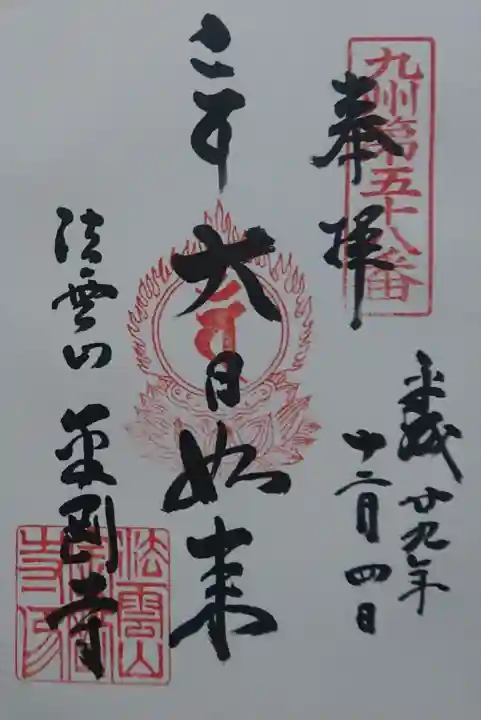 九州第五十八番
奉拝
平成廿九年
十二月四日
大日如来
法雲山 金剛寺
法雲山
金剛
寺印